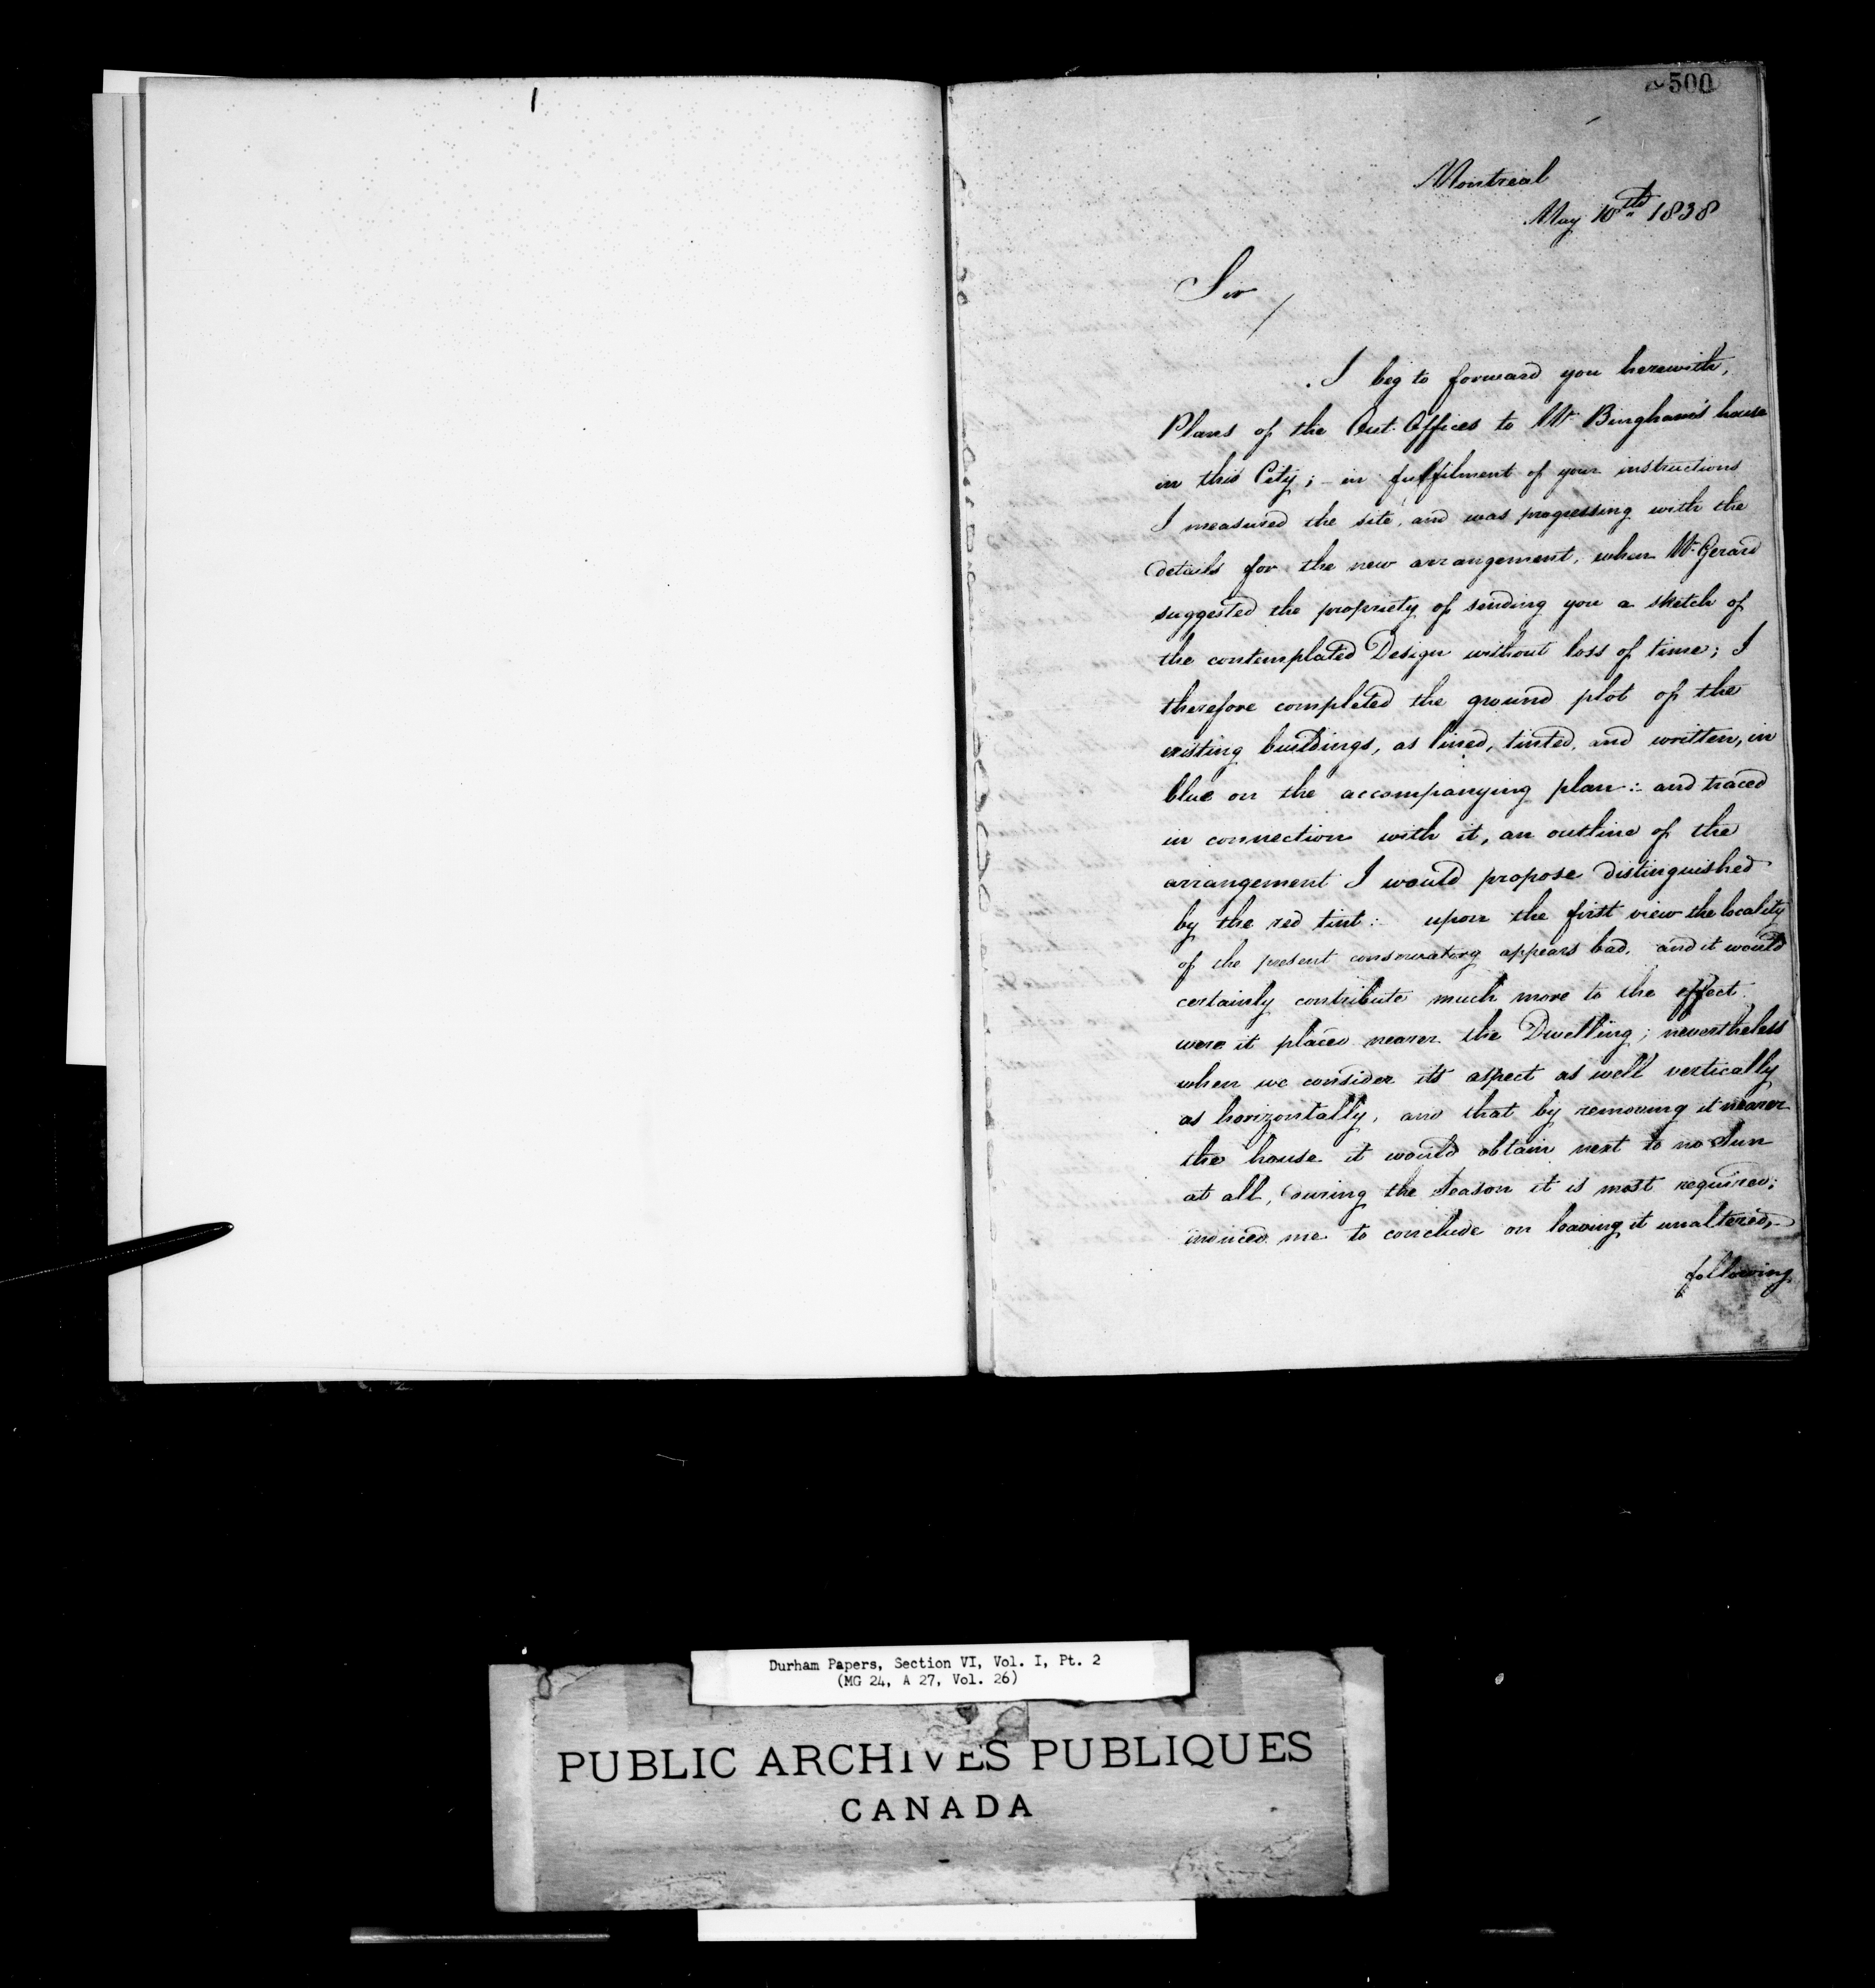 500
Montreal
May 10th 1838
Sir
I beg to forward you herewith,
Plans of the Out. Offices to Mr Bingham's house
in this City; - in fulfilment of your instructions
I measured the site, and was progressing with the
details for the new arrangement, when Mr Gerard
suggested the propriety of sending you a sketch of
the contemplated Design without loss of time; I
therefore completed the ground plot of the
existing buildings, as lined, tinted, and written, in
blue on the accompanying plan:- and traced
in connection with it, an outline of the
arrangement I would propose distinguished
by the red tint:- upon the first view the locality
of the present conservatory appears bad, and it would
certainly contribute much more to the effect
were it placed nearer the Dwelling; nevertheless
when we consider its aspect as well vertically
as horizontally, and that by removing it nearer
the house it would obtain next to no Sun
at all, during the Season it is most required;
induced me to conclude on leaving it unaltered,
following
Durham Papers, Section VI, Vol. I, Pt. 2
(MG 24, A 27, Vol. 26)
PUBLIC ARCHIVES PUBLIQUES
CANADA